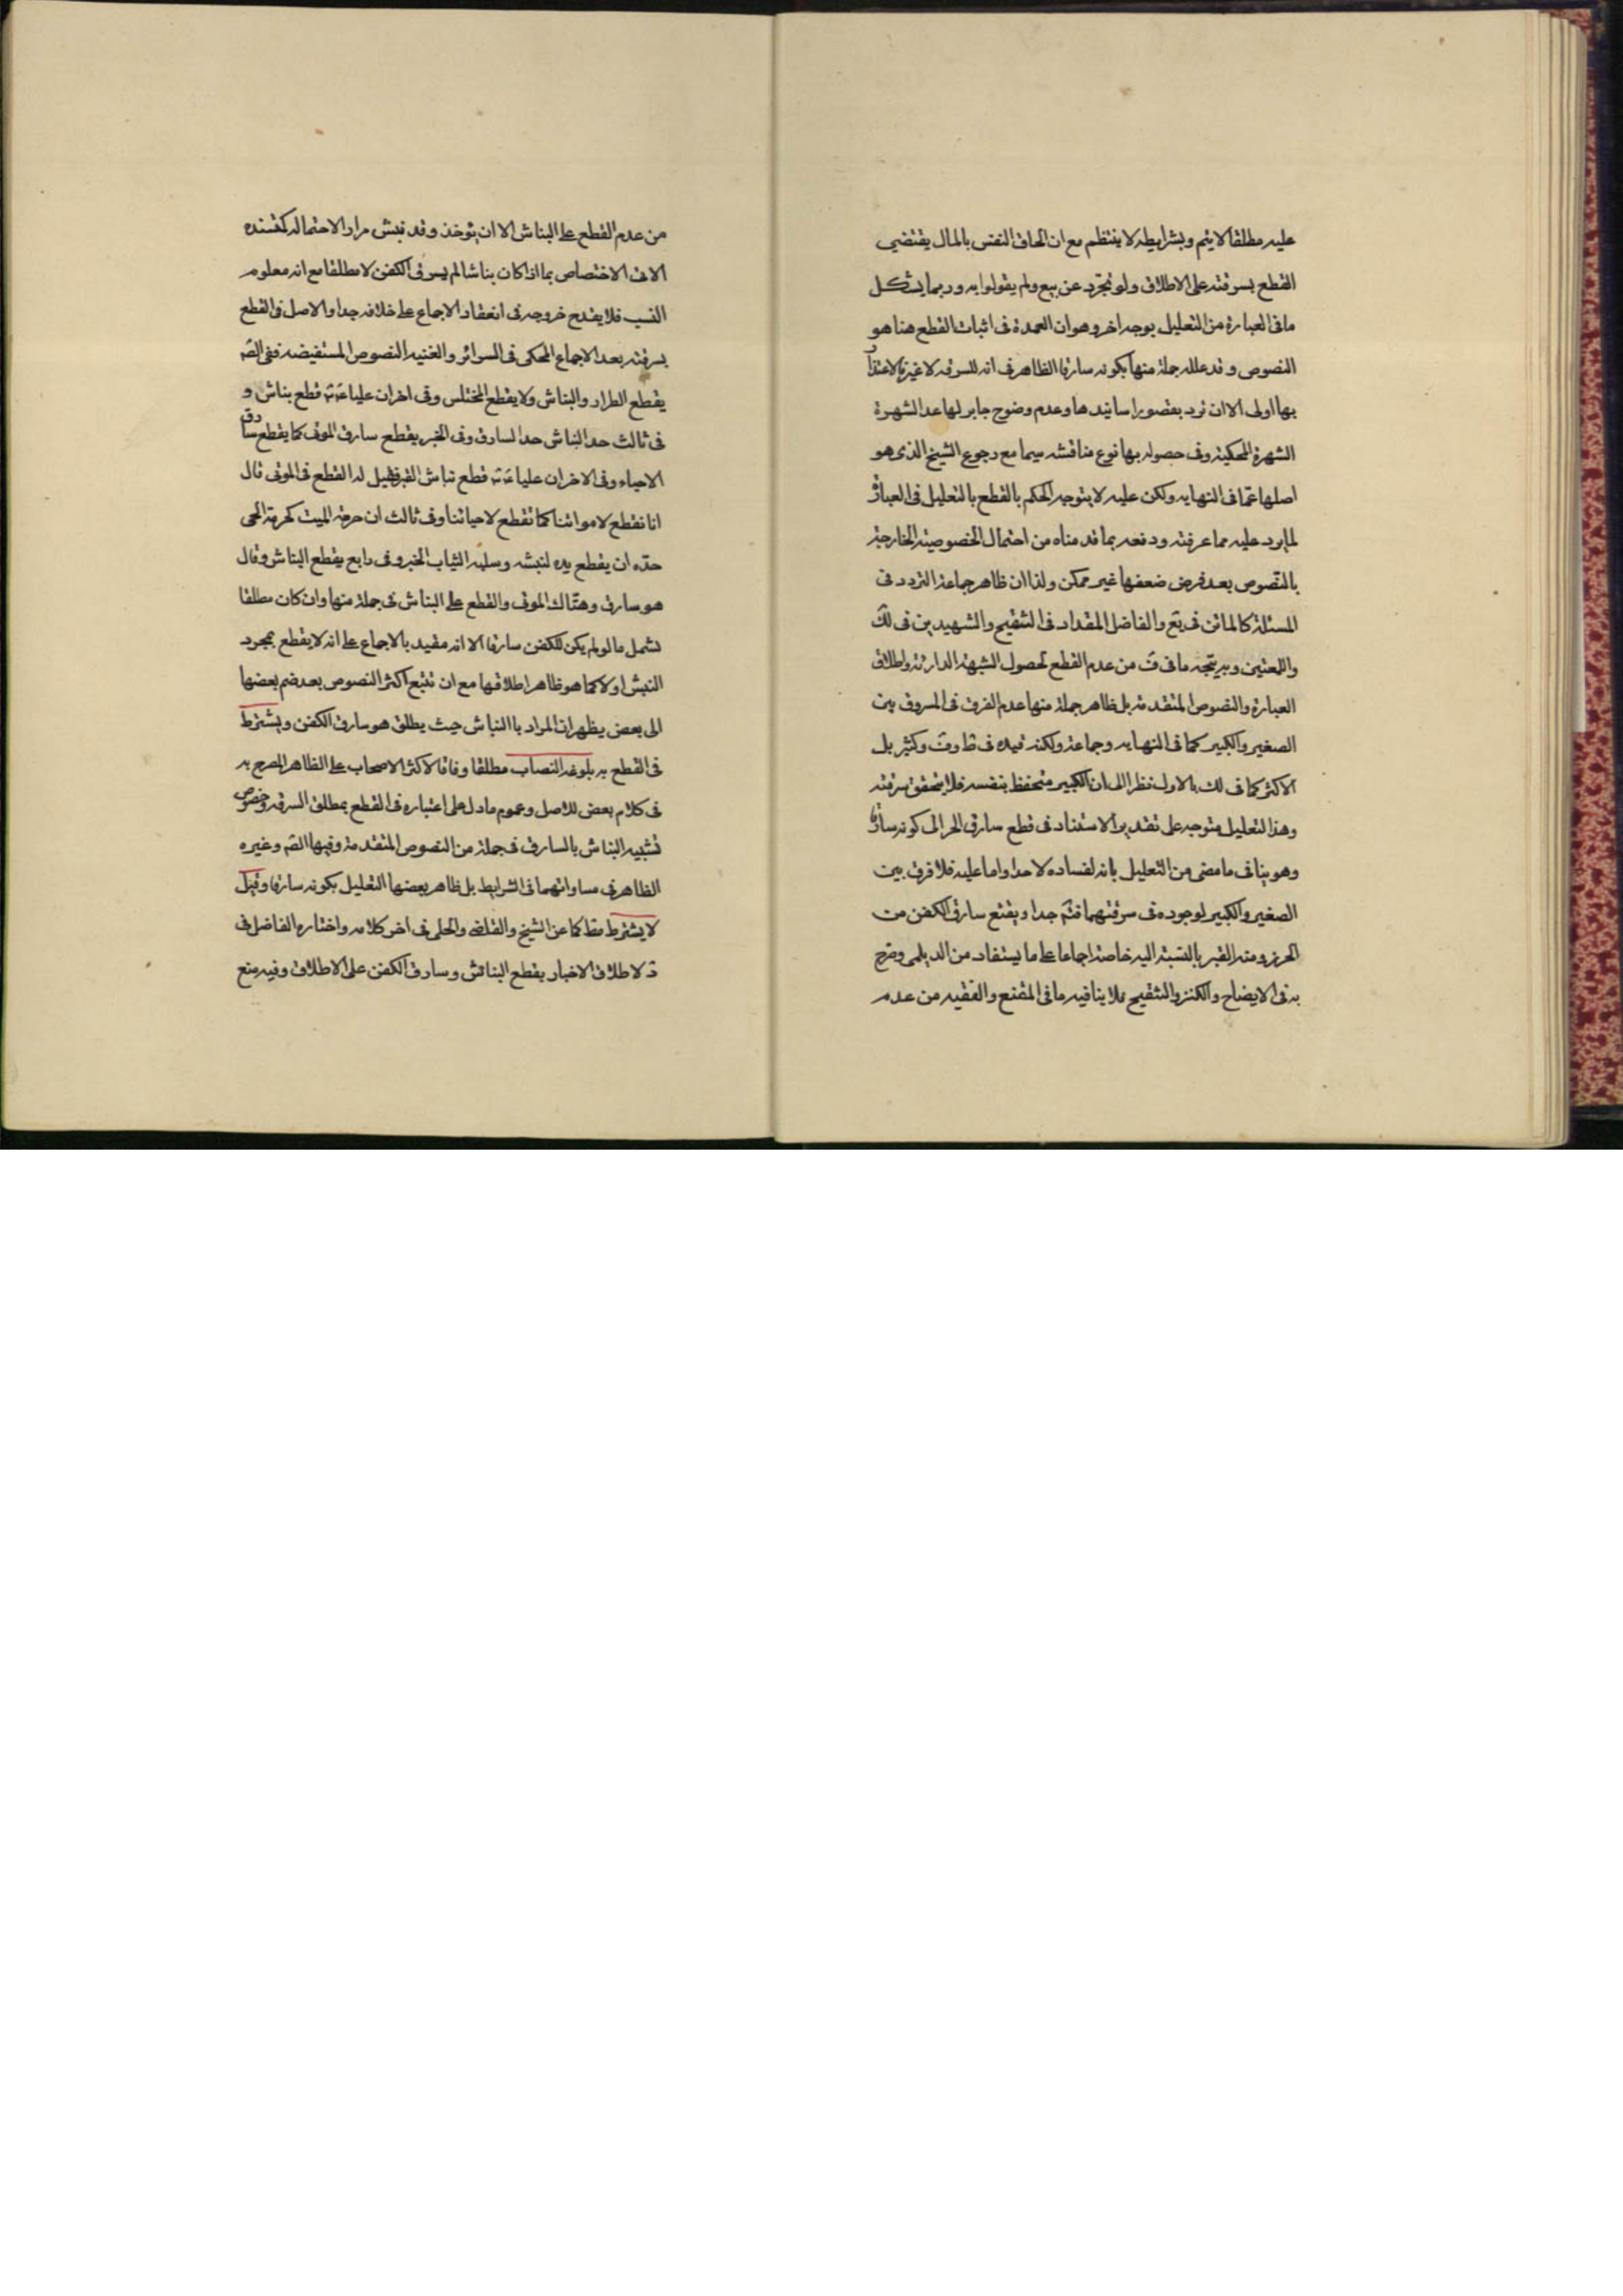 عليه مطلقا لا يتم وبشرايطه لا ينتظم مع ان الحاق النفس بالمال يقتضي
القطع بسرقته على الاطلاق ولو تجرد عن بيع ولم يقولوا به وربما يشكل
ما في العبارة من التعليل بوجه اخر وهو ان العمدة في اثبات القطع هنا هو
النصوص وقد علله جملة منها بكونه سارقا الظاهر في انه للسرقه لا غيره فالاعتذار
بها اولى الا ان ترد بقصور اسانيدها وعدم وضوح جابر لها عدا الشهرة
الشهرة المحكية وفي حصوله بها نوع مناقشه سيما مع رجوع الشيخ الذي هو
اصلها عما في النهايه ولكن عليه لا يتوجه الحكم بالقطع بالتعليل في العبارة
لما يرد عليه مما عرفته ودفعه بما قدمناه من احتمال الخصوصية الخارجة
بالنصوص بعد فرض ضعفها غير ممكن ولذا ان ظاهر جماعة التردد في
المسئلة كالماتن في يع والفاضل المقداد في التنقيح والشهيدين في لك
واللمعتين وبه يتجه ما في ف من عدم القطع لحصول الشبهة الدارئة واطلاق
العبارة والنصوص المتقدمة بل ظاهر جملة منها عدم الفرق في المسروق بين
الصغير والكبير كما في النهايه وجماعة ولكنه قيده في ط وف وكثير بل
الاكثر كما في لك بالاول نظرا الى ان الكبير متحفظ بنفسه فلا يتحقق سرقته
وهذا التعليل متوجه على تقدير الاستناد في قطع سارق الحر الى كونه سارقا
وهو ينافي ما مضى من التعليل بانه لفساده لا حدا واما عليه فلا فرق بين
الصغير والكبير لوجوده في سرقتهما فتم جدا ويقطع سارق الكفن من
الحرز ومنه القبر بالنسبة اليه خاصة اجماعا على ما يستفاد من الديلمي وصرح
به في الايضاح والكنز والتنقيح فلا ينافيه ما في المقنع والفقيه من عدم
من عدم القطع على النباش الا ان يؤخذ وقد نبش مرارا لاحتماله كمستنده
الاتي الاختصاص بما اذا كان نباشا لم يسرق الكفن لا مطلقا مع انه معلوم
النسب فلا يقدح خروجه في انعقاد الاجماع على خلافه جدا والاصل في القطع
بسرقته بعد الاجماع المحكي في السرائر والغنيه النصوص المستفيضه ففي الصم
يقطع الطرار والنباش ولا يقطع المختلس وفي اخر ان عليا قطع نباش و
في ثالث حد النباش حد السارق وفي الخبر يقطع سارق الموتى كما يقطع سارق
الاحياء وفي الاخر ان عليا قطع نباش القبر فقيل له القطع في الموتى قال
انا نقطع لامواتنا كما نقطع لاحيائنا وفي ثالث ان حرمة الميت كحرمة الحي
حده ان يقطع يده لنبشه وسلبه الثياب الخبر وفي رابع يقطع النباش وقال
هو سارق وهتاك الموتى والقطع على النباش في جملة منها وان كان مطلقا
لشمل ما لو لم يكن للكفن سارقا الا انه مقيد بالاجماع على انه لا يقطع بمجرد
النبش اولا كما هو ظاهر اطلاقها مع ان تتبع اكثر النصوص بعد ضم بعضها
الى بعض يظهر ان المراد بالنباش حيث يطلق هو سارق الكفن ويشترط
في القطع به بلوغه النصاب مطلقا وفاقا لاكثر الاصحاب على الظاهر المصرح به
في كلام بعض للاصل وعموم ما دل على اعتباره في القطع بمطلق السرقه وخصوص
تشبيه النباش بالسارق في جملة من النصوص المتقدمة وفيها الصم وغيره
الظاهر في مساواتهما في الشرايط بل ظاهر بعضها التعليل بكونه سارقا وقيل
لا يشترط مط كما عن الشيخ والقاضي والحلي في اخر كلامه واختاره الفاضل في
د لاطلاق الاخبار بقطع النباش وسارق الكفن على الاطلاق وفيه منع